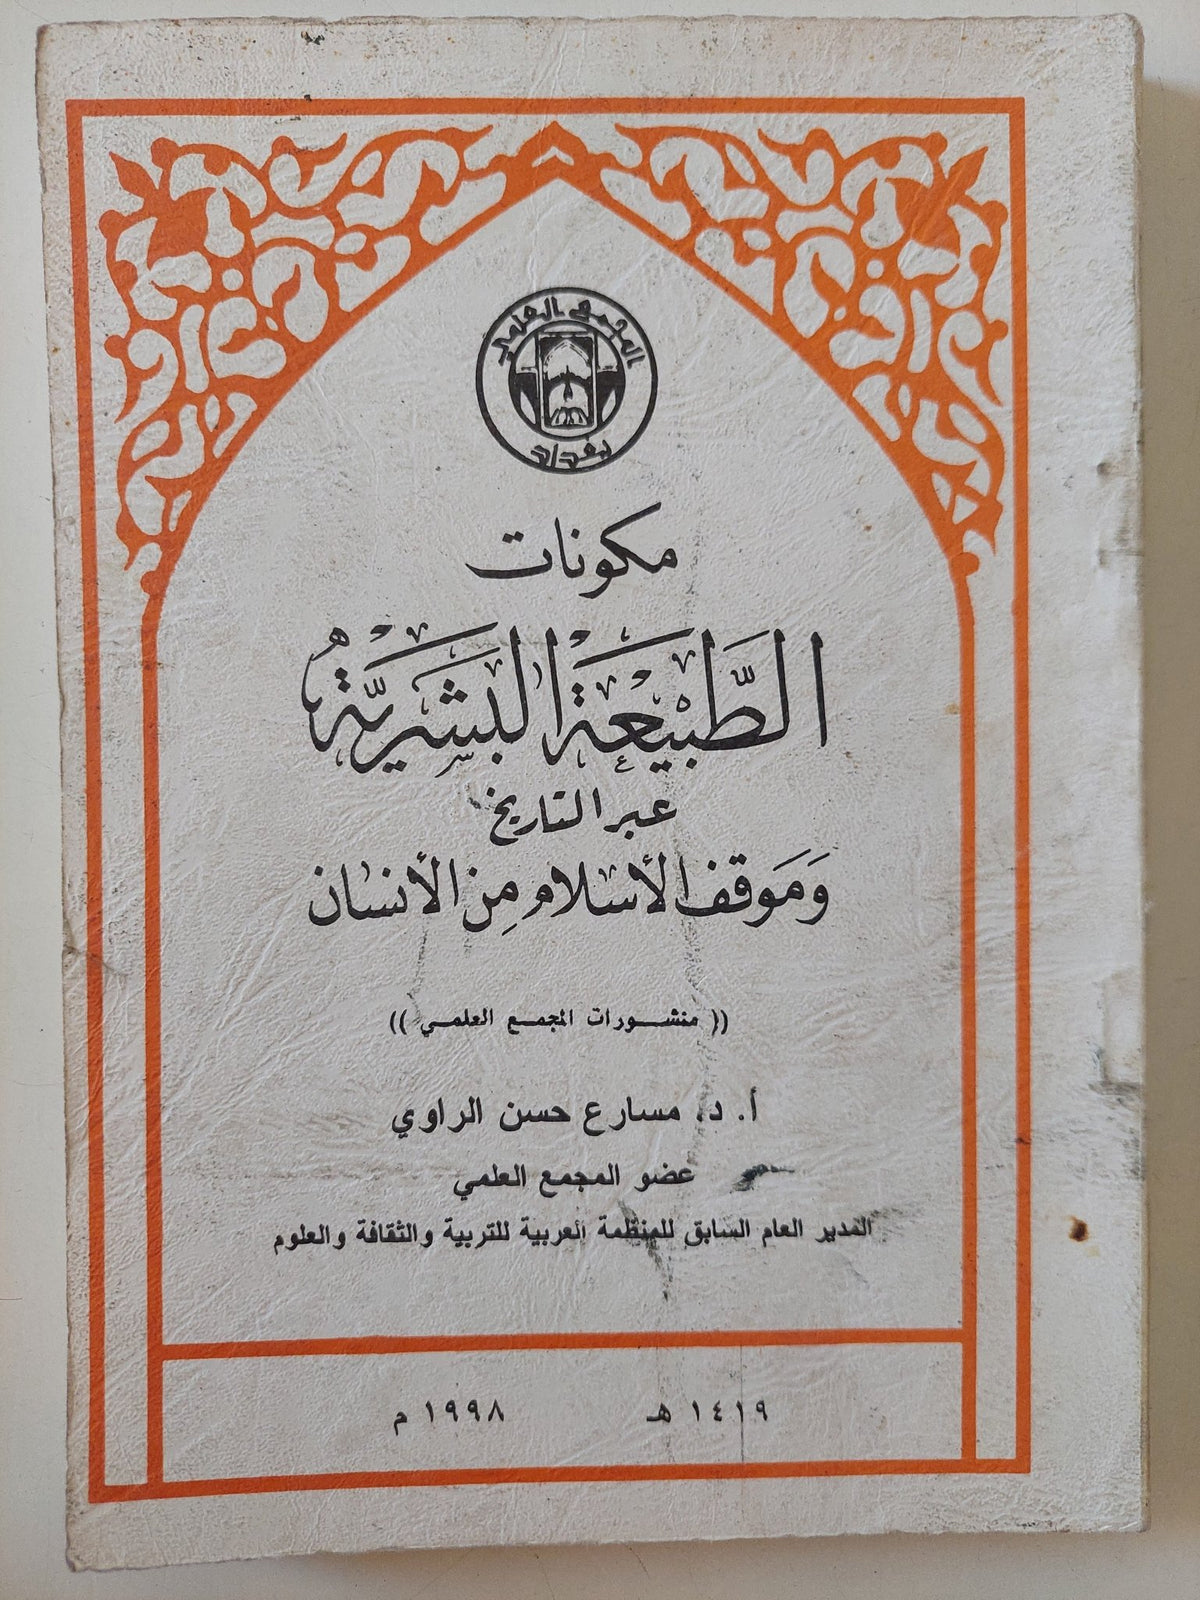 المجمع العلمي
بغداد
مكونات
الطَّبيعة البشَريَّة
عبر التاريخ
وَمَوقف الأسلام مِن الأنسان
(( منشـــورات المجمـع العلمـي ))
أ. د. مسارع حسن الراوي
عضو المجمع العلمي
المدير العام السابق للمنظمة العربية للتربية والثقافة والعلوم
١٤١٩ هـ ١٩٩٨ م